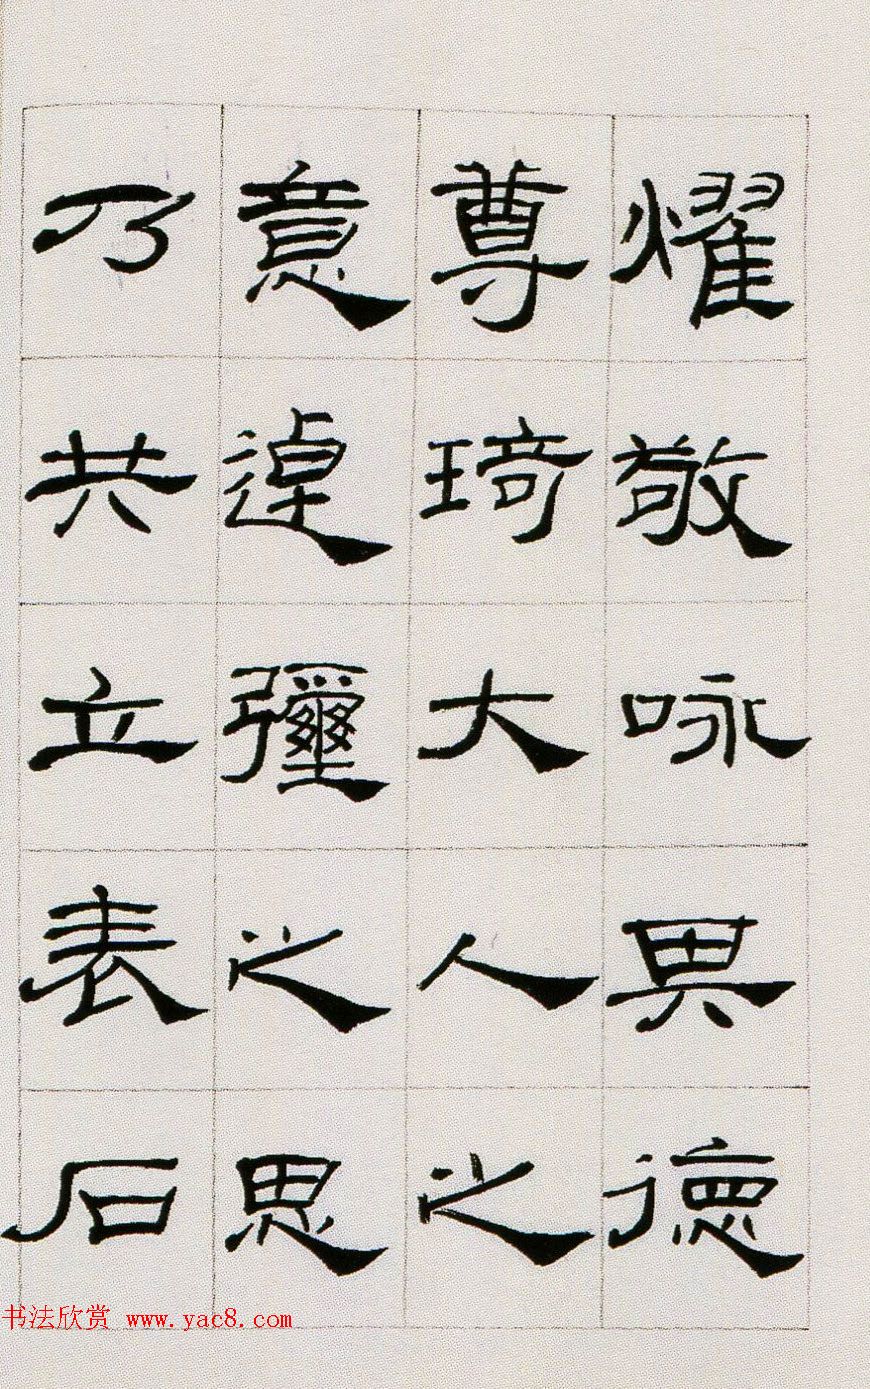 燿敬咏其德
尊琦大人之
意逴彌之思
乃共立表石
书法欣赏 www.yac8.com